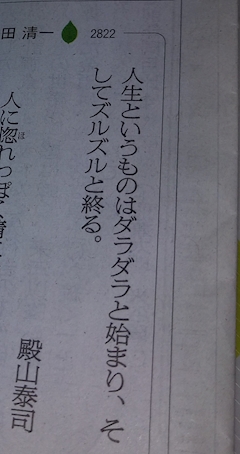 田 清一 2822
人生というものはダラダラと始まり、そ
してズルズルと終る。
殿山泰司
人に惚れっぽく